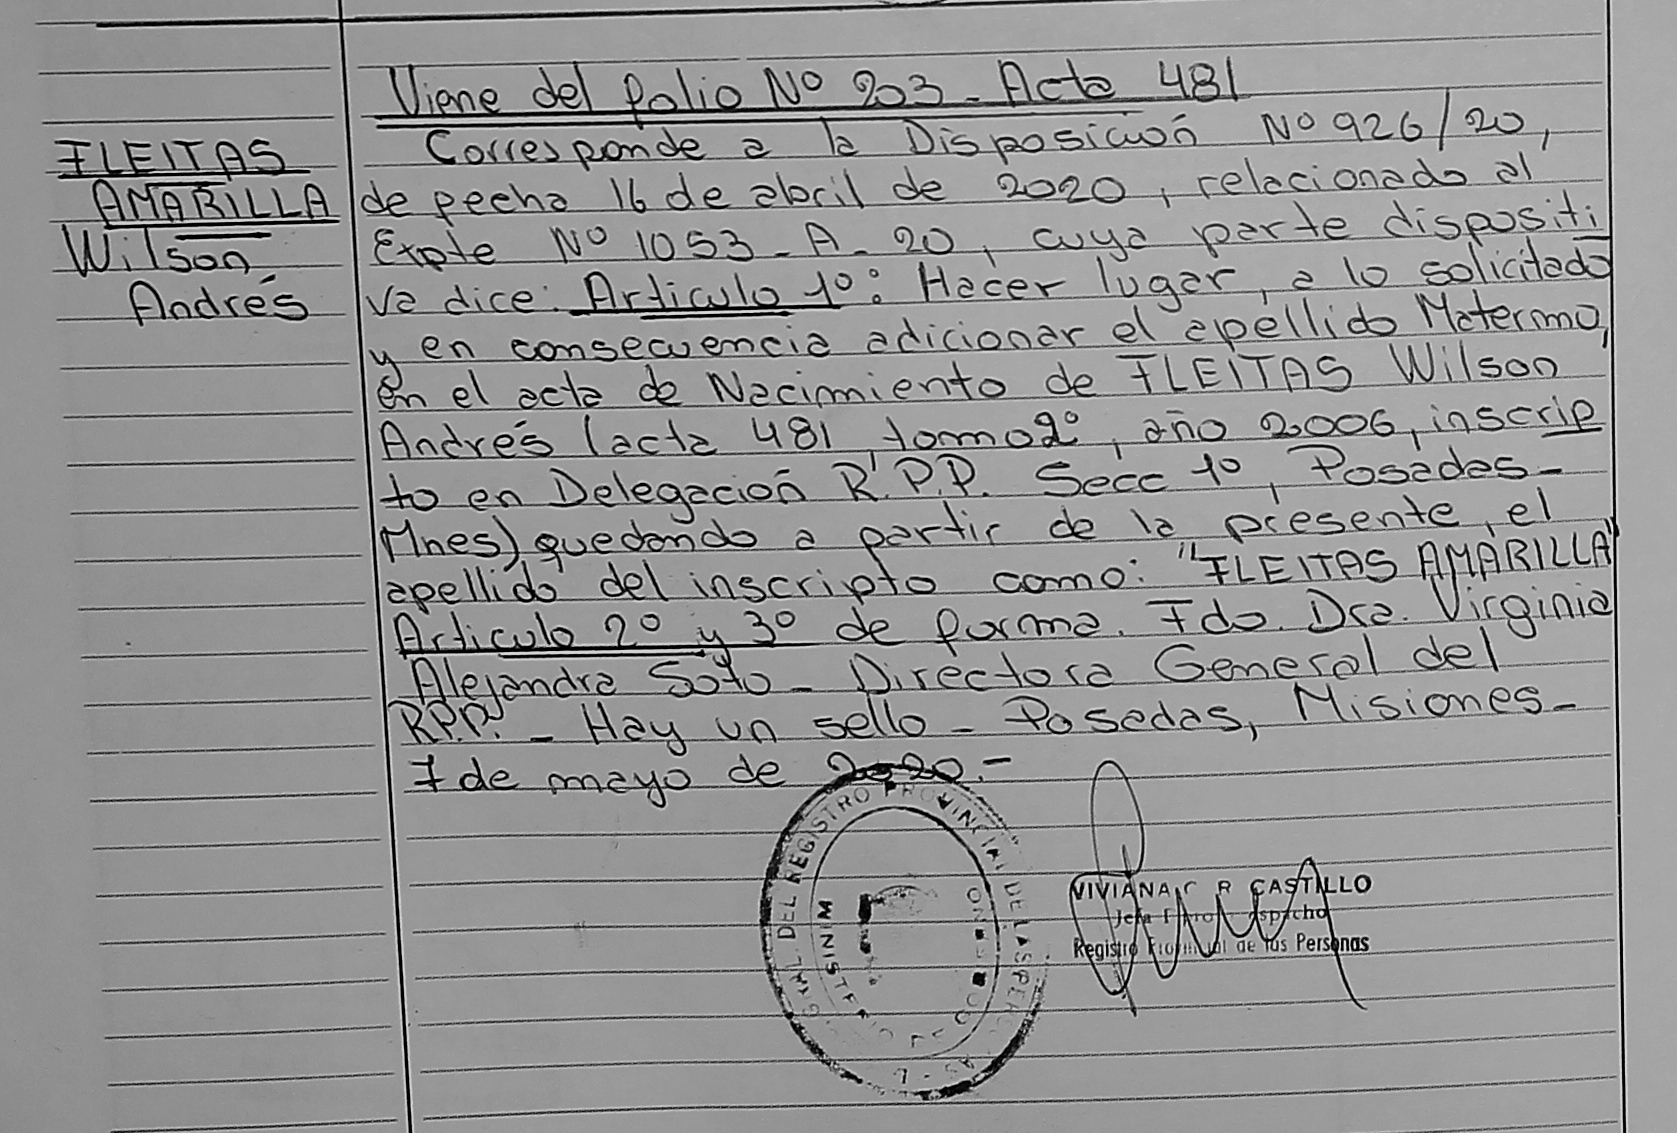 Viene del folio Nº 203 - Acta 481
FLEITAS
AMARILLA
Wilson
Andrés
Corresponde a la Disposición Nº 926/20,
de fecha 16 de abril de 2020, relacionado al
Expte Nº 1053-A-20, cuya parte dispositi
va dice: Artículo 1º: Hacer lugar, a lo solicitado
y en consecuencia adicionar el apellido Materno,
en el acta de Nacimiento de FLEITAS Wilson
Andrés (acta 481, tomo 2º, año 2006, inscrip
to en Delegación R.P.P. Secc 1º, Posadas-
Mnes) quedando a partir de la presente, el
apellido del inscripto como: "FLEITAS AMARILLA"
Artículo 2º y 3º de forma. Fdo. Dra. Virginia
Alejandra Soto - Directora General del
R.P.P. - Hay un sello - Posadas, Misiones-
7 de mayo de 2020.-
DEL REGISTRO PROVINCIAL DE LAS
VIVIANA C R CASTILLO
Registro Provincial de las Personas